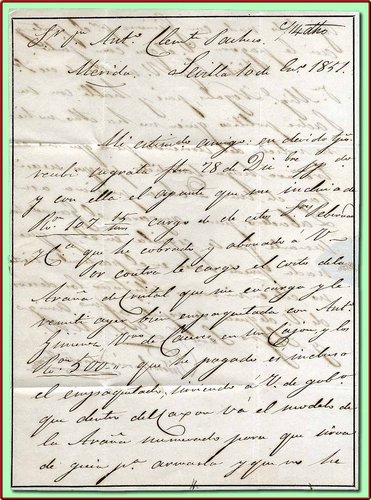 Sr Dn Anto. Clemte. Pacheco
Merida. Sevilla 10 de Eno. 1851.
Mi estimado amigo: en devido
recibí su grata fha 28 de Dice. pp. de
y con ella el apunte que me incluia de
Rs. 107 cargo de estos Sres
y Ca. que he cobrado y abonado á V.
Por contra le cargo el costo de la
Araña de Cristal que me encarga y le
remití ayer bien empaquetada con Anto.
un Cajon y los
Rs. 500 que he pagado es incluso
el empaquetado, sirviendo á V. de gobo.
que dentro del Caxon vá el modelo de
la Araña numerado para que sirva
de guia pa. armarla y que no he